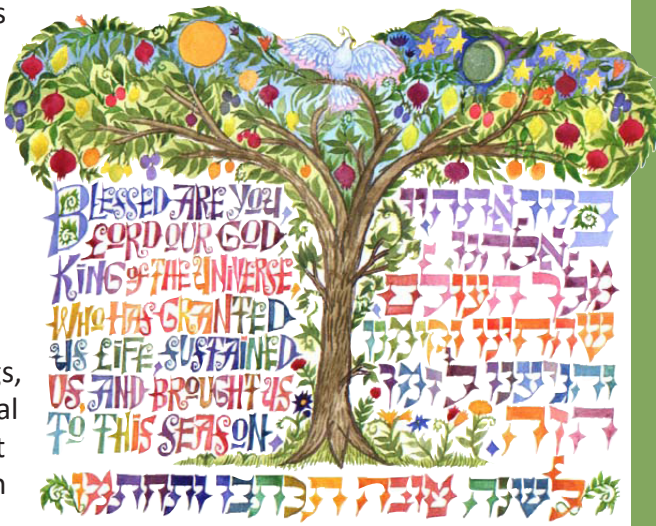 s
BLESSED ARE YOU,
LORD OUR GOD,
KING of THE UNIVERSE,
WHO HAS GRANTED
US LIFE, SUSTAINED
US, AND BROUGHT US
TO THIS SEASON.
gs,
al
t
n
ברוך אתה יי
אלהינו
מלך העולם
שהחינו וקימנו
והגיענו לזמן
הזה.
לשנה טובה תכתבו ותחתמו